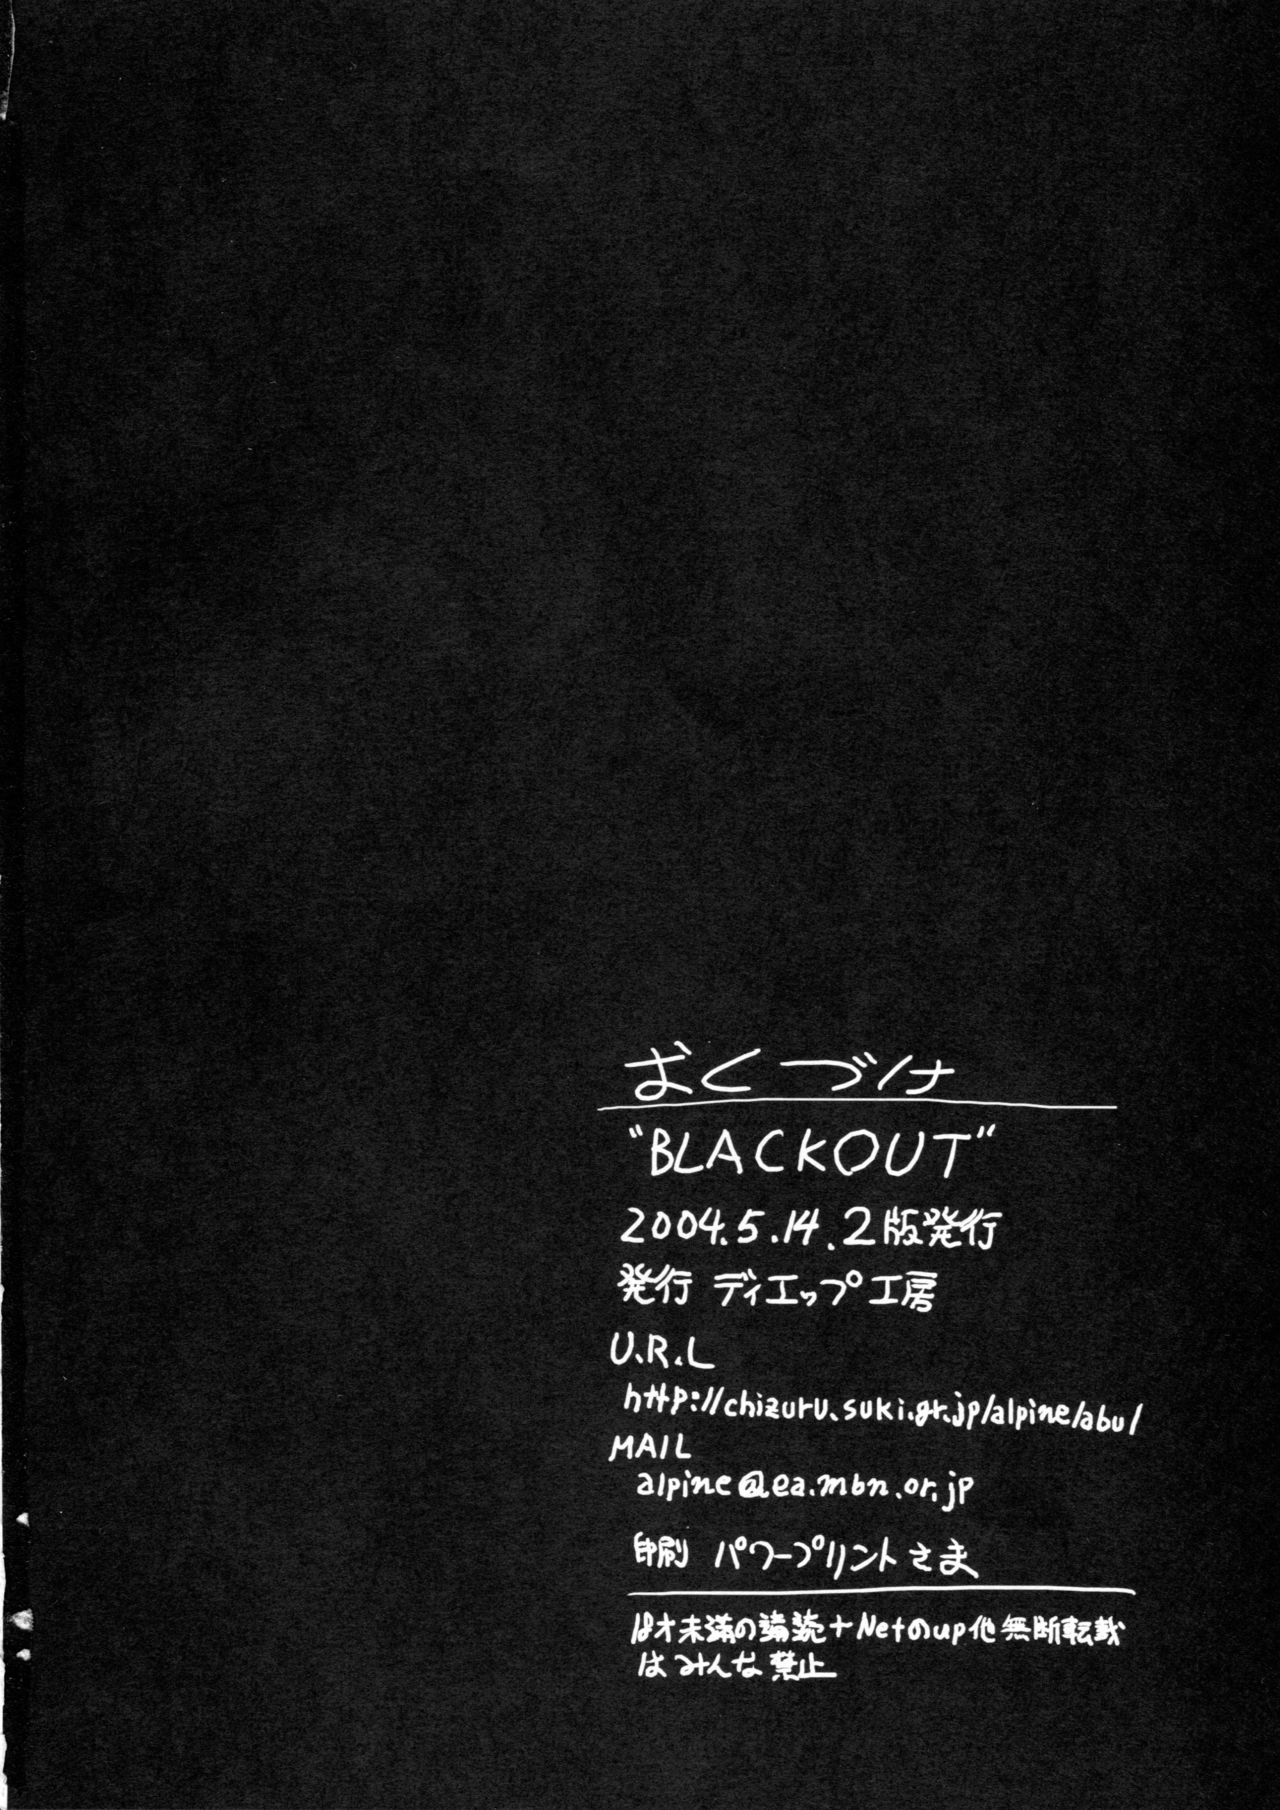 おくづけ
"BLACKOUT"
2004.5.14.2版発行
発行 ディエップ工房
U.R.L
http://chizuru.suki.gr.jp/alpine/abu/
MAIL
alpine@ea.mbn.or.jp
印刷 パワープリントさま
18才未満の購読+Netのup他無断転載
はみんな禁止